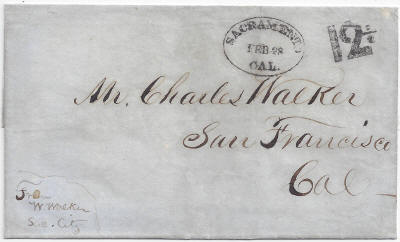 SACRAMENTO
FEB 28
CAL.
12½
Mr. Charles Walker
San Francisco
Cal
From
W Walker
Sac. City